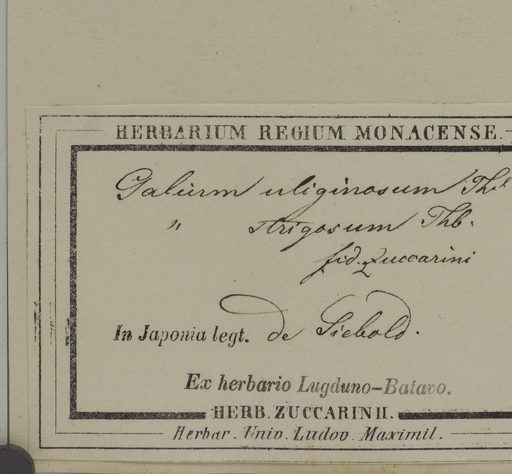 HERBARIUM REGIUM MONACENSE.
Galium uliginosum Thb
" strigosum Thb.
fid. Zuccarini
In Japonia legt. de Siebold.
Ex herbario Lugduno-Batavo.
HERB. ZUCCARINII.
Herbar. Univ. Ludov. Maximil.